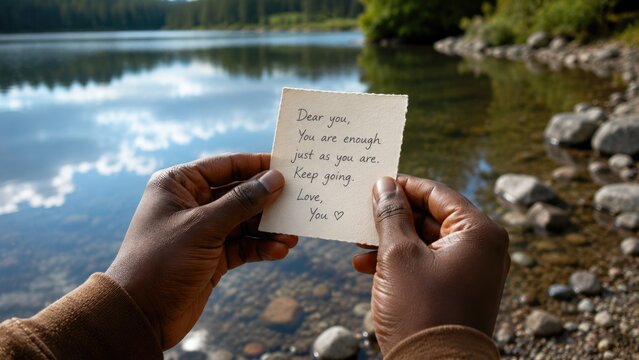 Dear you,
You are enough
just as you are.
Keep going.
Love,
You ♡